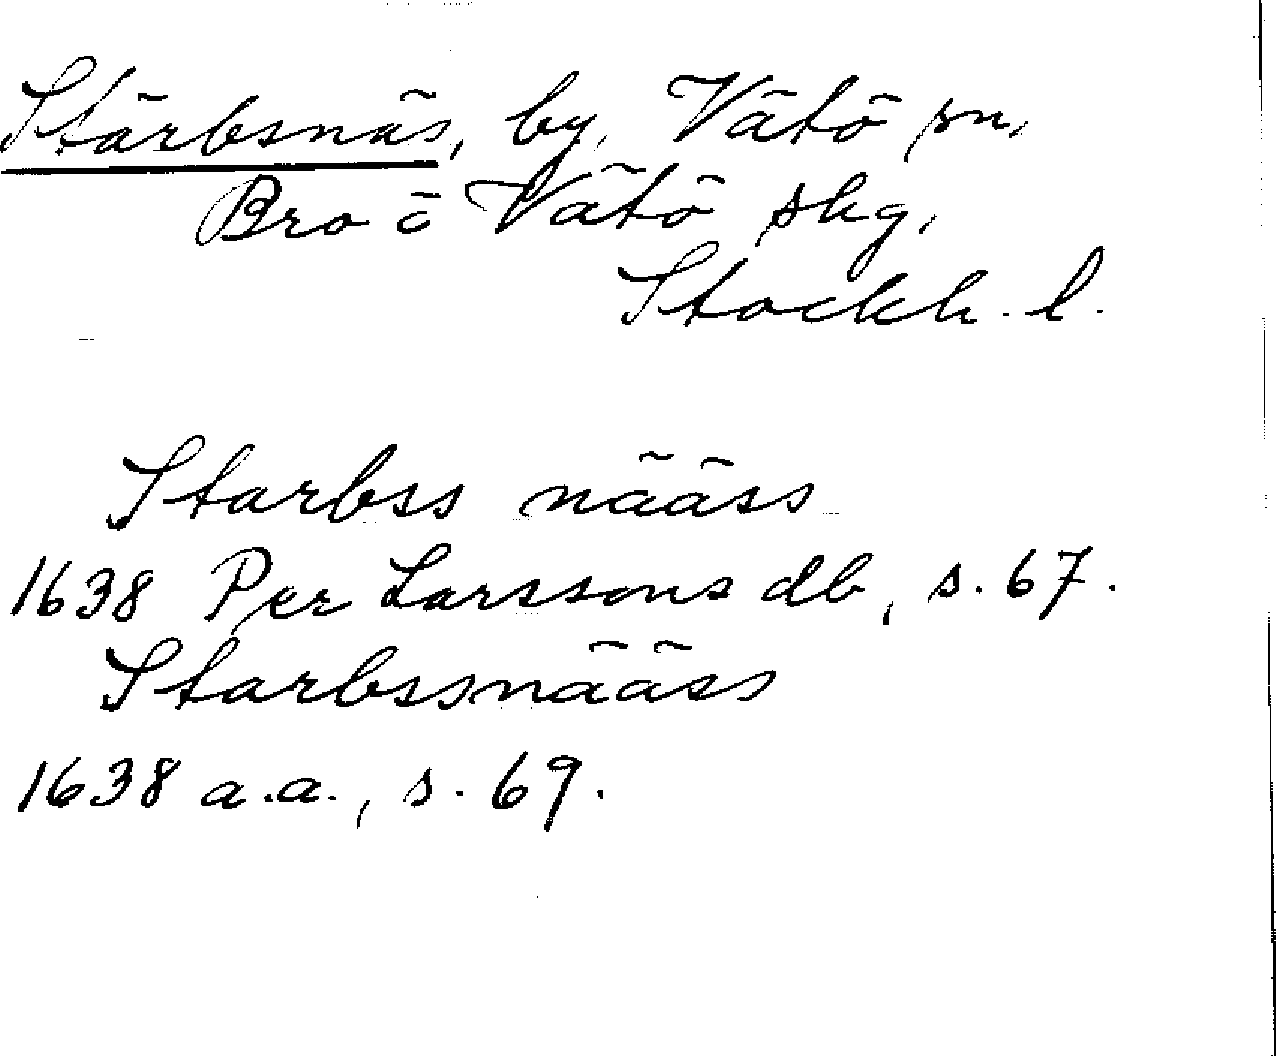 Stärbsnäs, by, Vätö sn,
Bro o Vätö skg,
Stockh. l.
Starbss nääss
1638 Per Larssons db, s. 67.
Starbssnääss
1638 a.a., s. 69.